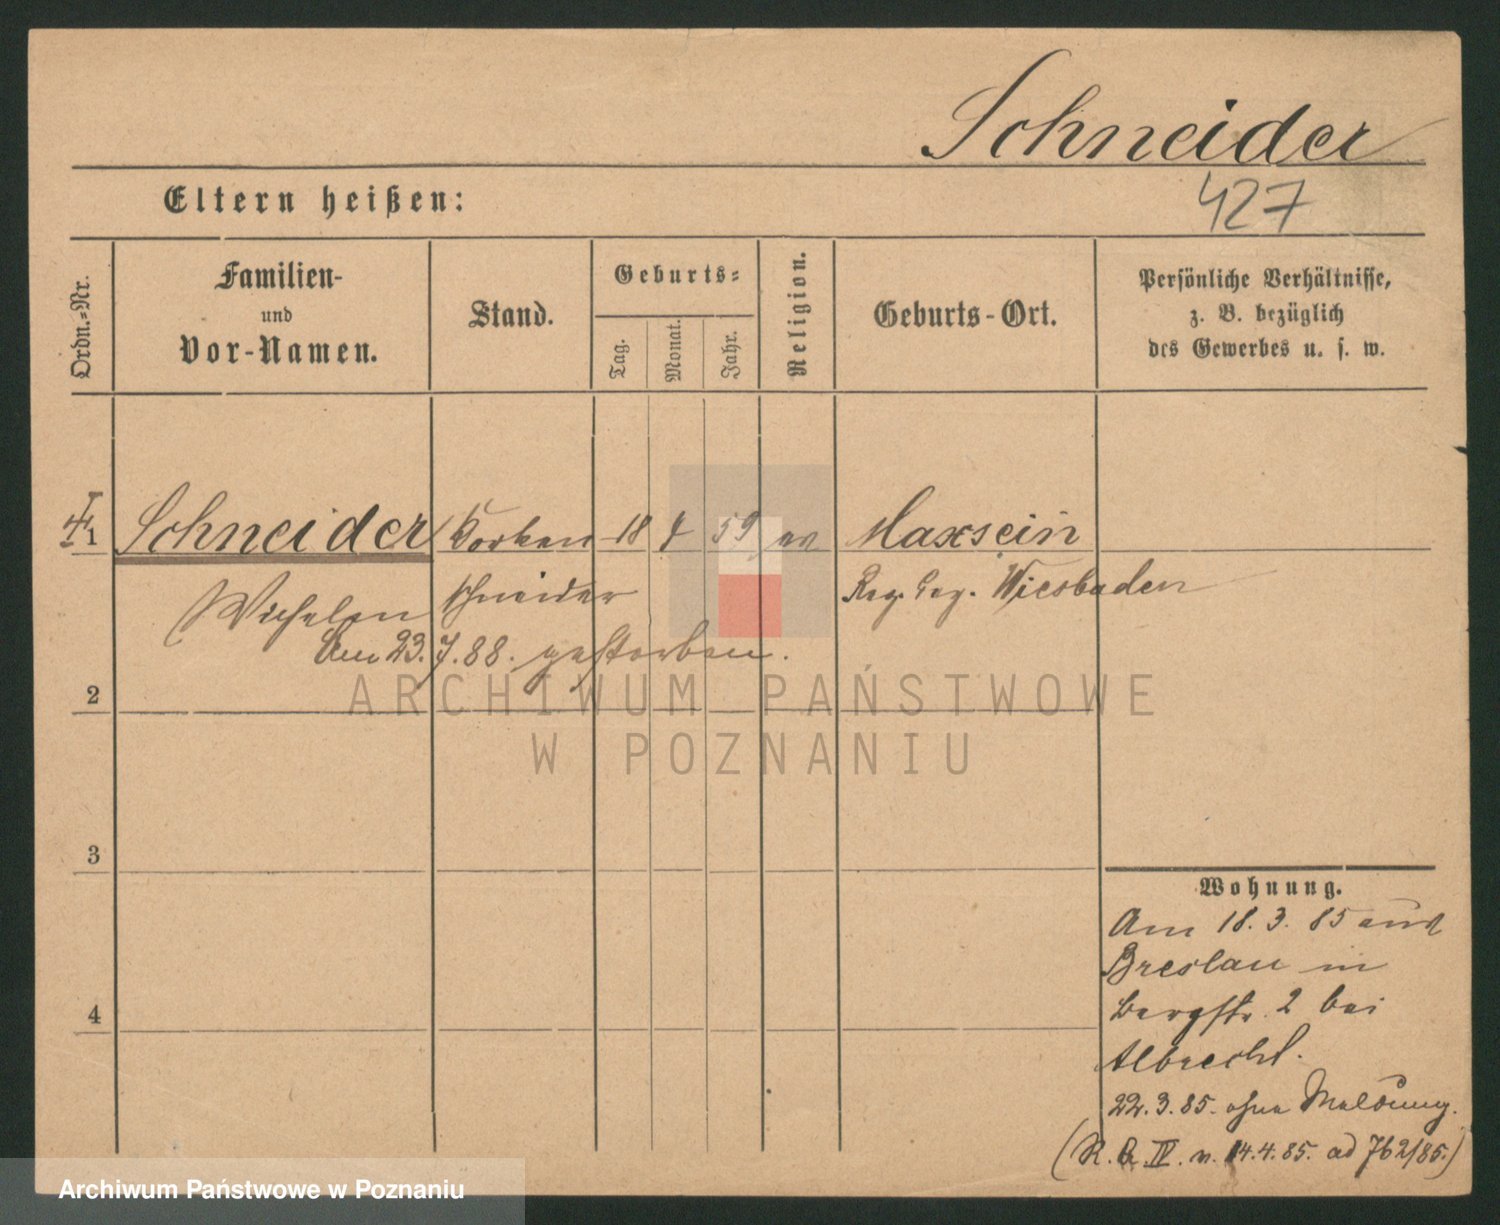 Schneider
427
Eltern heißen:
Ordn.-Nr.
Familien-
und
Vor-Namen.
Stand.
Geburts-
Tag.
Monat.
Jahr.
Religion.
Geburts-Ort.
Persönliche Verhältnisse,
z. B. bezüglich
des Gewerbes u. s. w.
1 Schneider Korken 18 4 59 ev Maxsein
Wilhelm schneider Reg. Bez. Wiesbaden
Am 23.7.88. gestorben.
2
ARCHIWUM PAŃSTWOWE
W POZNANIU
3
Wohnung.
Am 18. 3. 85 aus
Breslau in
Bergstr. 2 bei
4
Albrecht.
22. 3. 85. ohne Meldung.
(R. B. IV. v. 14.4.85. ad 762/85.)
Archiwum Państwowe w Poznaniu